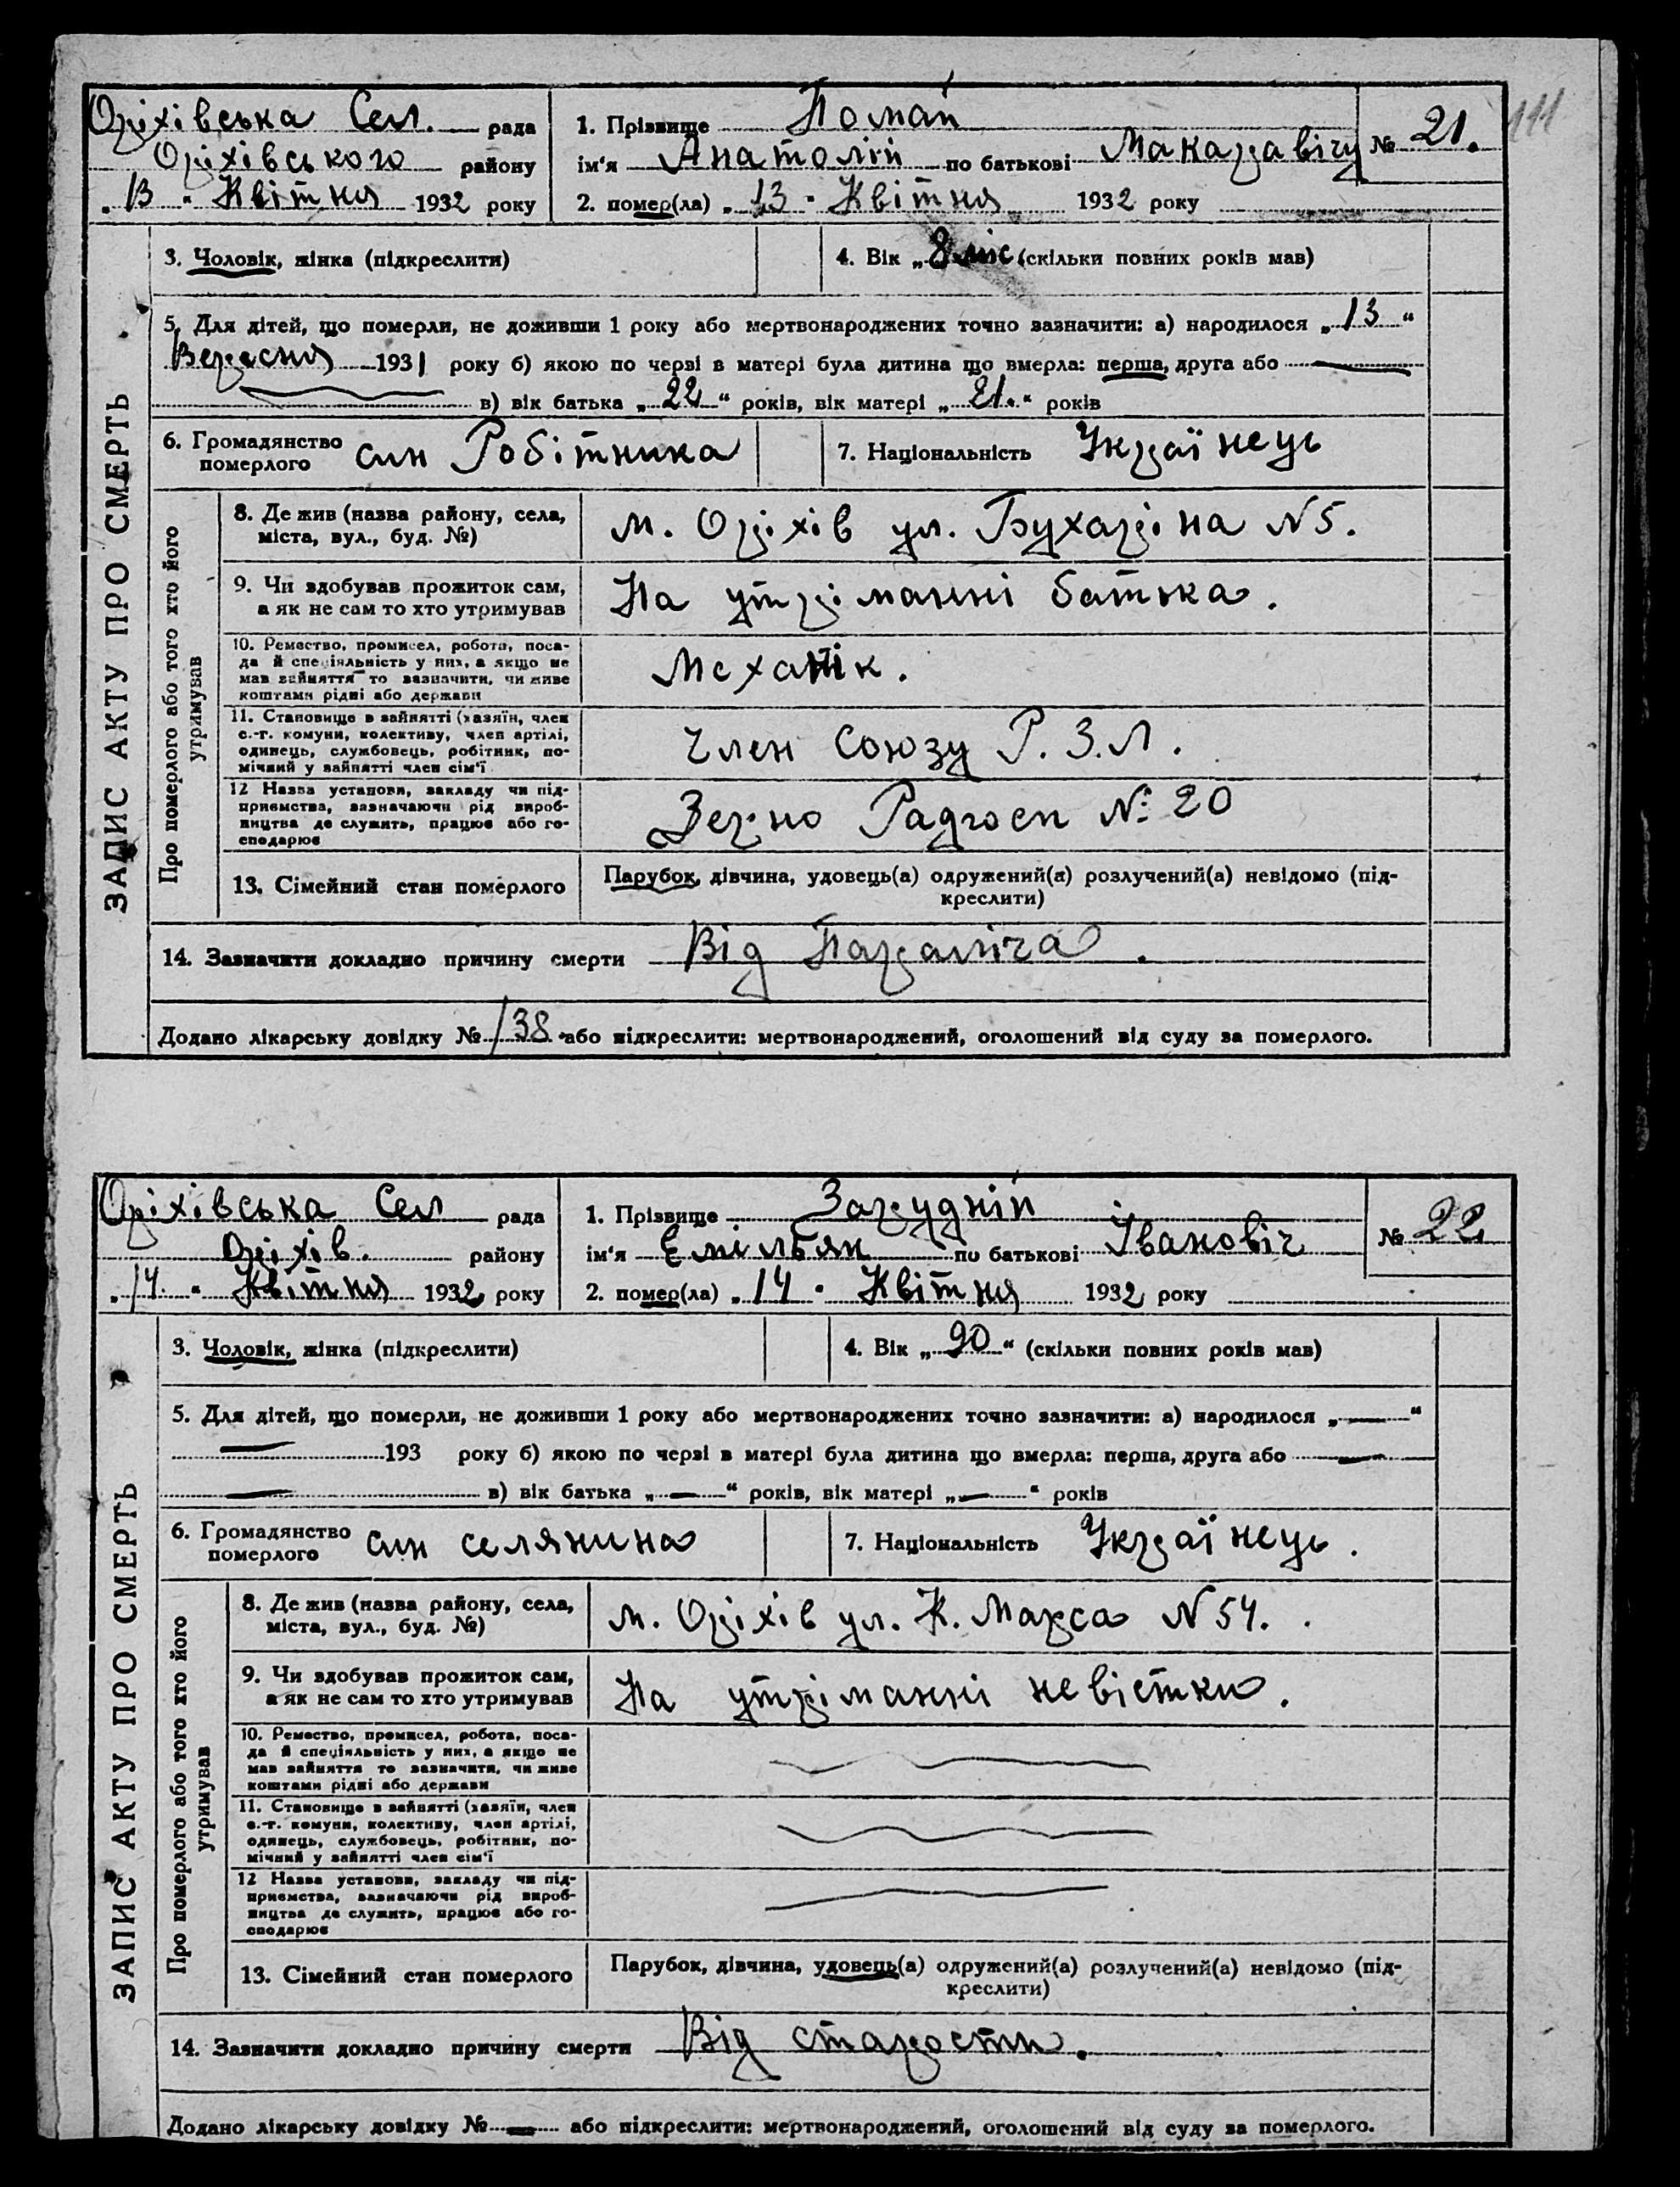 111
Оріхівська Сел. рада
Оріхівського району
„13“ Квітня 1932 року
1. Прізвище Помай
ім'я Анатолій по батькові Макаравічу
№ 21.
2. помер(ла) „13“ Квітня 1932 року
3. Чоловік, жінка (підкреслити)
4. Вік „8 міс (скільки повних років мав)
5. Для дітей, що померли, не доживши 1 року або мертвонароджених точно зазначити: а) народилося „13“
Вересня 1931 року б) якою по черві в матері була дитина що вмерла: перша, друга або —
в) вік батька „22“ років, вік матері „21.“ років
6. Громадянство
померлого син Робітника
7. Національність Україінець
ЗАПИС АКТУ ПРО СМЕРТЬ
Про померлого або того хто його
утримував
8. Де жив (назва району, села,
міста, вул., буд. №)
м. Оріхів ул. Бухаріна N 5.
9. Чи здобував прожиток сам,
а як не сам то хто утримував
На утріманні батька.
10. Ремество, промисел, робота, поса-
да й спеціяльність у них, а якщо не
мав зайняття то зазначити, чи живе
коштами рідні або держави
Механік.
11. Становище в зайнятті (хазяїн, член
с.-г. комуни, колективу, член артілі,
одинець, службовець, робітник, по-
мічний у зайнятті член сім'ї
Член Союзу Р. З. Л.
12 Назва установи, закладу чи під-
приємства, зазначаючи рід вироб-
ництва де служить, працює або го-
сподарює
Зерно Радгосп № 20
13. Сімейний стан померлого
Парубок, дівчина, удовець(а) одружений(а) розлучений(а) невідомо (під-
креслити)
14. Зазначити докладно причину смерти Від Параліча.
Додано лікарську довідку № 138 або підкреслити: мертвонароджений, оголошений від суду за померлого.
Оріхівська Сел рада
Оріхів. району
„14.“ Квітня 1932 року
1. Прізвище Зарудній
ім'я Емільян по батькові Івановіч
№ 22
2. помер(ла) „14“ Квітня 1932 року
3. Чоловік, жінка (підкреслити)
4. Вік „90“ (скільки повних років мав)
5. Для дітей, що померли, не доживши 1 року або мертвонароджених точно зазначити: а) народилося „—“
— 193 року б) якою по черзі в матері була дитина що вмерла: перша, друга або —
— в) вік батька „—“ років, вік матері „—“ років
6. Громадянство
померлого син селянина
7. Національність Україінець.
ЗАПИС АКТУ ПРО СМЕРТЬ
Про померлого або того хто його
утримував
8. Де жив (назва району, села,
міста, вул., буд. №)
м. Оріхів ул. К. Маркса N 54.
9. Чи здобував прожиток сам,
а як не сам то хто утримував
На утріманні невістки.
10. Ремество, промисел, робота, поса-
да й спеціяльність у них, а якщо не
мав зайняття то зазначити, чи живе
коштами рідні або держави
11. Становище в зайнятті (хазяїн, член
с.-г. комуни, колективу, член артілі,
одинець, службовець, робітник, по-
мічний у зайнятті член сім'ї
12 Назва установи, закладу чи під-
приємства, зазначаючи рід вироб-
ництва де служить, працює або го-
сподарює
13. Сімейний стан померлого
Парубок, дівчина, удовець(а) одружений(а) розлучений(а) невідомо (під-
креслити)
14. Зазначити докладно причину смерти Від старости.
Додано лікарську довідку № — або підкреслити: мертвонароджений, оголошений від суду за померлого.